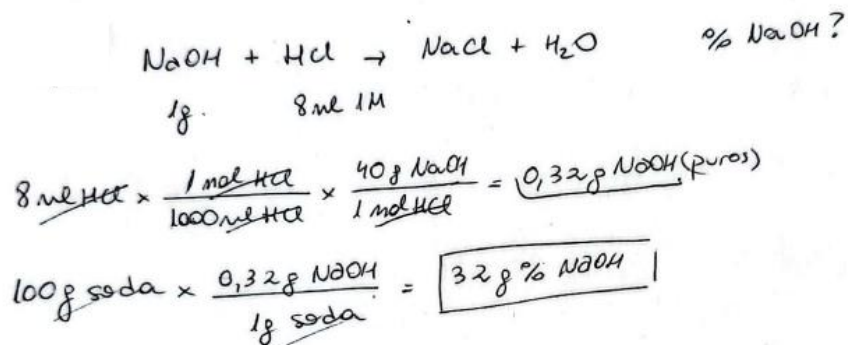 NaOH + HCl → NaCl + H₂O % NaOH?
1g. 8ml 1M
8ml HCl × 1 mol HCl / 1000ml HCl × 40g NaOH / 1 mol HCl = 0,32g NaOH (puros)
100g soda × 0,32g NaOH / 1g soda = 32g% NaOH